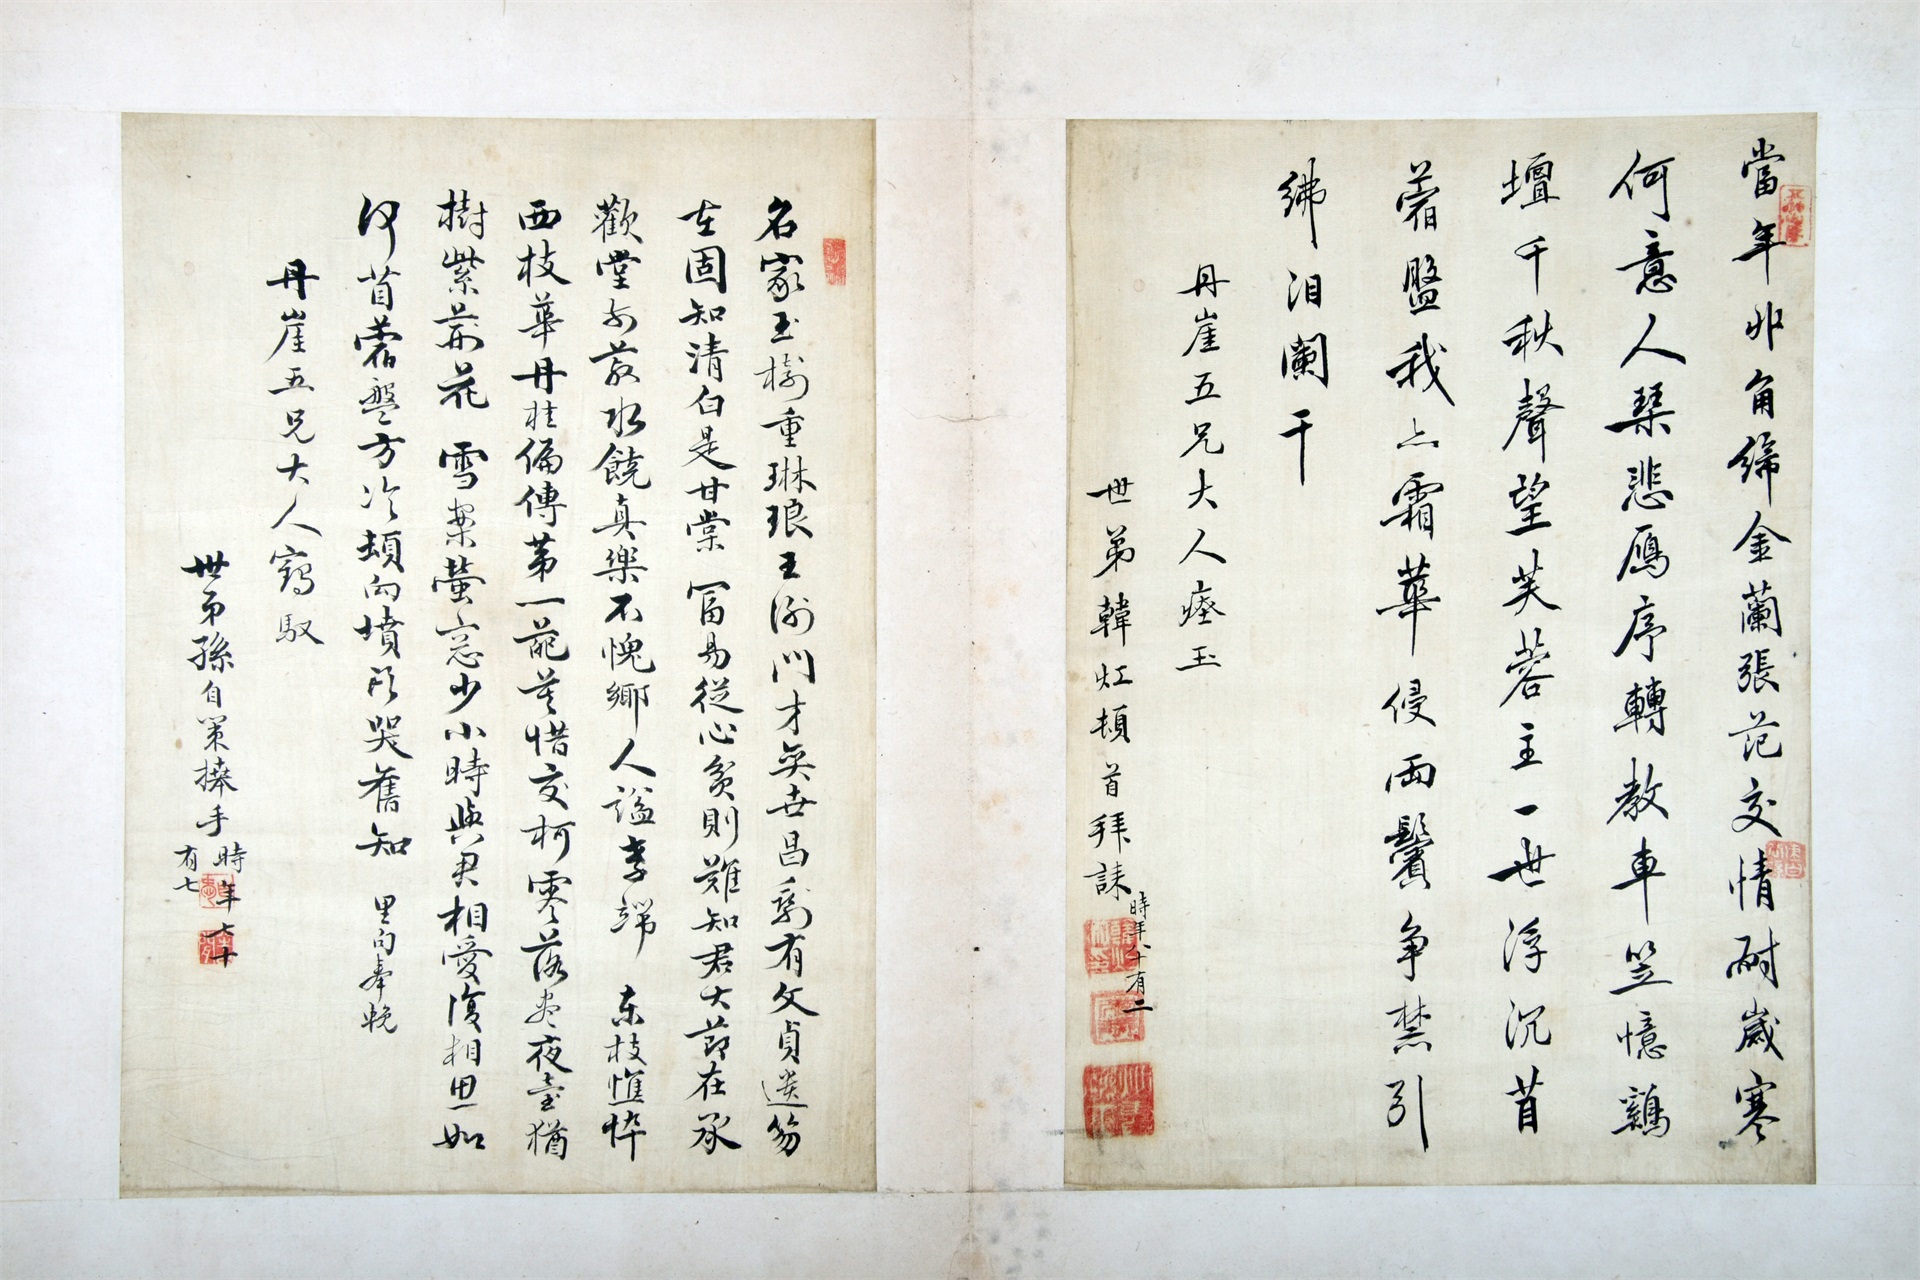 當年丱角締金蘭張范交情耐歲寒
何意人琴悲雁序轉教車笠憶鷄
壇千秋聲望芙蓉主一世浮沉苜
蓿盤我亦霜華侵兩鬢争禁引
紼泪闌干
丹崖五兄大人瘞玉
世弟韓 頓首拜誄
時年八十有二
名家玉樹重琳琅王謝門才奕世昌剩有文貞遺笏
在固知清白是甘棠 富易從心貧則難知君大節在承
歡堂前菽水饒真樂不愧鄉人謚孝端 東枝憔悴
西枝華丹桂偏傳第一葩莫惜交柯零落盡夜臺猶
樹紫荊花 雪案螢窓少小時與君相愛復相思如
何苜蓿盤方冷頓向墳頭哭舊知 里句奉輓
丹崖五兄大人鶴馭
世弟孫自 捧手
時年七十
有七